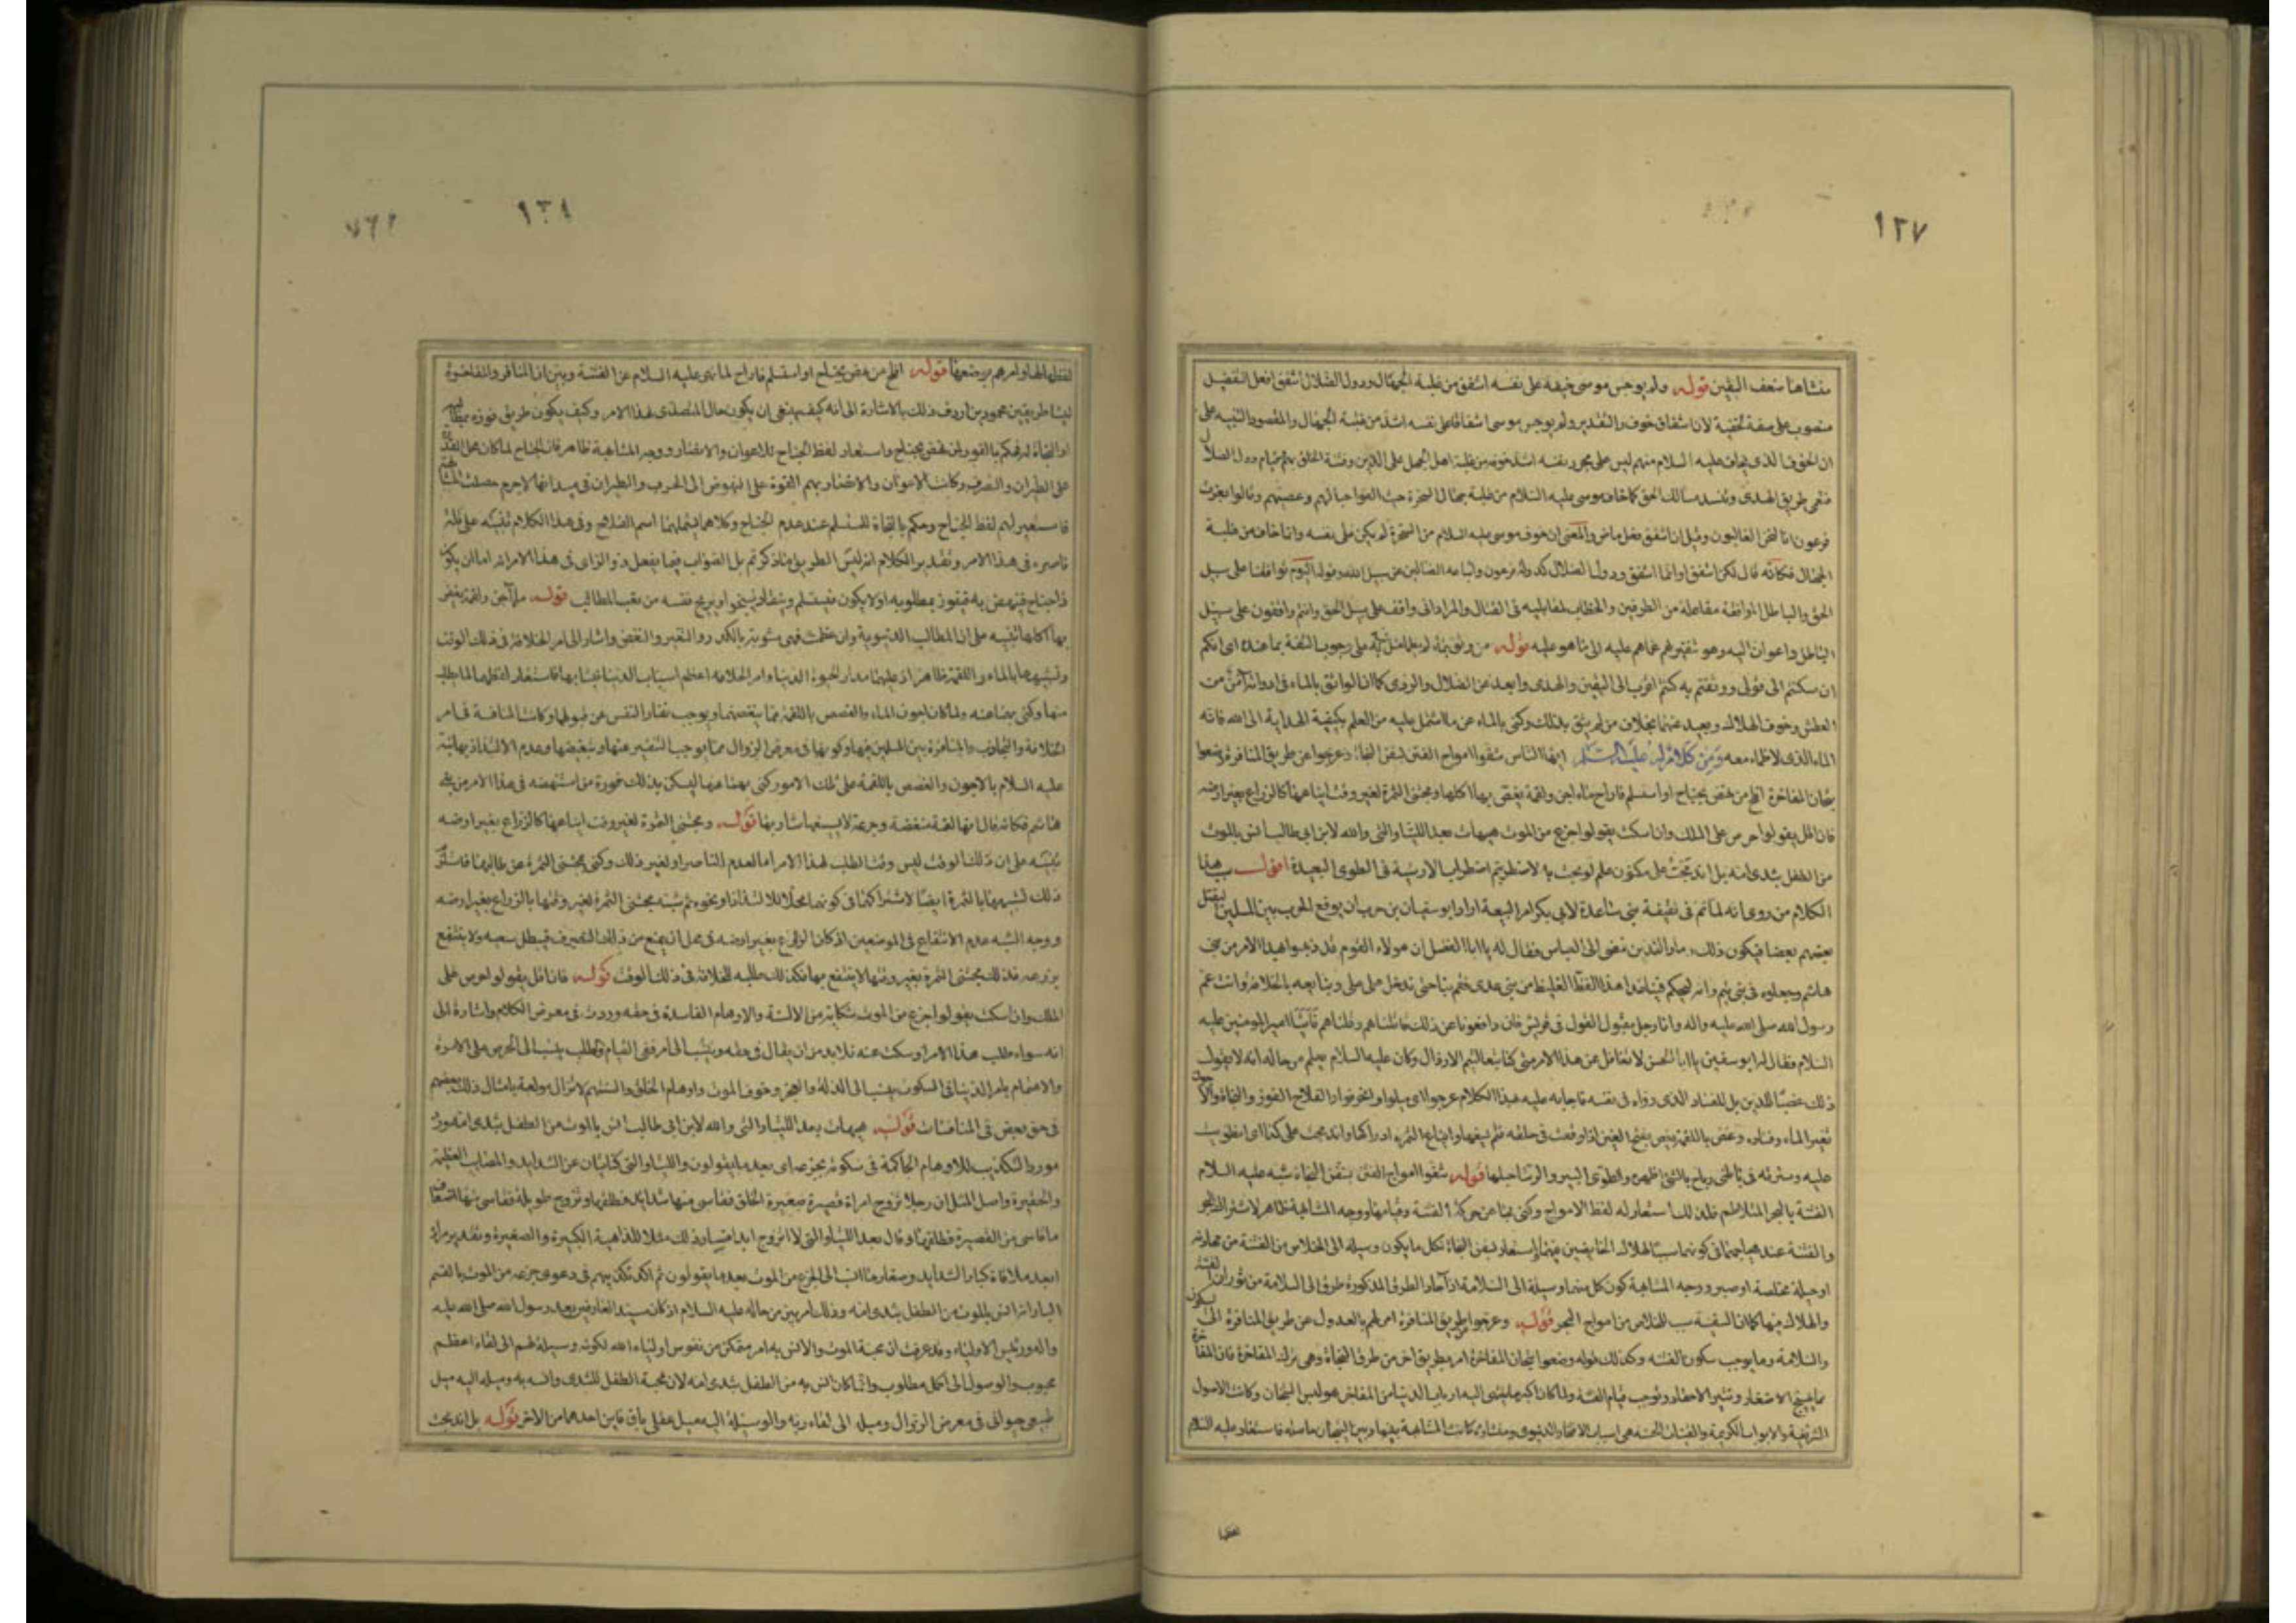 ١٢٧
منشاها ضعف اليقين قوله ولم يوجس موسى خيفة على نفسه اشفق من غلبة الجهال ودول الضلال اشفق افعل التفضيل
منصوب على صفة لخيفة لان اشفاق خوف والتقدير ولم يوجس موسى اشفاقا على نفسه اشد من غلبة الجهال والمقصود التنبيه على
ان الخوف الذى يخافه عليه السلام منهم ليس على مجرد نفسه اشد خوفه من غلبة اهل الجهل على الدين وفتنة الخلق بهم وقيام دول الضلال
فتعمى طريق الهدى وتنسد مسالك الحق كما خاف موسى عليه السلام من غلبة جهال السحرة حيث القوا حبالهم وعصيهم وقالوا بعزة
فرعون انا لنحن الغالبون وقيل ان اشفق فعل ماض والمعنى ان خوف موسى عليه السلام من السحرة لم يكن على نفسه وانما خاف من غلبة
الجهال فكانه قال لكن اشفق او انما اشفق ودول الضلال كدولة فرعون واتباعه الضالين عن سبيل الله وقوله اليوم توافقنا على سبيل
الحق والباطل الموافقة مفاعلة من الطرفين والخطاب لمقابليه فى القتال والمراد انى واقف على سبيل الحق وانتم واقفون على سبيل
الباطل وداعون اليه وهو تنفير لهم عما هم عليه الى ما هو عليه قوله من وثق بماء لم يظما مثل نبه به على وجوب الثقة بما عنده اى انكم
ان سكنتم الى قولى ووثقتم به كنتم اقرب الى اليقين والهدى وابعد عن الضلال والردى كما ان الواثق بالماء فى اداوته آمن من
العطش وخوف الهلاك وبعيد عنهما بخلاف من لم يثق بذلك وكنى بالماء عن ما اشتمل عليه من العلم بكيفية الهداية الى الله فانه
الماء الذى لا ظماء معه ومن كلام له عليه السلام ايها الناس شقوا امواج الفتن بسفن النجاة وعرجوا عن طريق المنافرة وضعوا
تيجان المفاخرة افلح من نهض بجناح او استسلم فاراح ماء اجن ولقمة يغص بها اكلها ومجتنى الثمرة لغير وقت ايناعها كالزراع بغير ارضه
فان اقل يقولوا حرص على الملك وان اسكت يقولوا جزع من الموت هيهات بعد اللتيا والتى والله لابن ابى طالب انس بالموت
من الطفل بثدى امه بل اندمجت على مكنون علم لو بحت به لاضطربتم اضطراب الارشية فى الطوى البعيدة اقول سبب هذا
الكلام ما روى انه لما تم فى سقيفة بنى ساعدة لابى بكر امر البيعة اراد ابو سفيان بن حرب ان يوقع الحرب بين المسلمين ليقتل
بعضهم بعضا فيكون ذلك دمار الدين فمضى الى العباس فقال له يا ابا الفضل ان هؤلاء القوم قد ذهبوا بهذا الامر من بنى
هاشم وجعلوه فى بنى تيم وانه ليحكم فينا غدا هذا الفظ الغليظ من بنى عدى فقم بنا حتى ندخل على على ونبايعه بالخلافة وانت عم
رسول الله صلى الله عليه واله وانا رجل مقبول القول فى قريش فان دافعونا عن ذلك قاتلناهم وقتلناهم فاتيا امير المومنين عليه
السلام فقال له ابو سفين يا ابا الحسن لا تغافل عن هذا الامر متى كنا تبعا لتيم الارذال وكان عليه السلام يعلم من حاله انه لا يقول
ذلك غضبا للدين بل للفساد الذى رواه فى نفسه فاجابه عليه بهذا الكلام عرجوا اى ميلوا وانحرفوا والفلاح الفوز والنجاة والاجون
تغير الماء وفساده وغص باللقمة يغص بفتح الغين اذا وقفت فى حلقه فلم يسغها وايناع الثمرة ادراكها واندمجت على كذا اى انطويت
عليه وسترته فى باطنى وباح بالشئ اظهره والطوى البير والرشا حبلها قوله شقوا امواج الفتن بسفن النجاة شبه عليه السلام
الفتنة بالبحر المتلاطم فلذلك استعار له لفظ الامواج وكنى بها عن حركة الفتنة وقيامها ووجه المشابهة ظاهر لاشتراك البحر
والفتنة عند هيجانهما فى كونهما سببا لهلاك الخائضين فيهما واستعار بسفن النجاة لكل ما يكون وسيلة الى الخلاص من الفتنة من مهادنة
او حيلة مخلصة او صبر ووجه المشابهة كون كل منهما وسيلة الى السلامة اذ آحاد الطرق المذكورة طرق الى السلامة من ثوران الفتنة
والهلاك فيها كما ان السفينة سبب للخلاص من امواج البحر قوله وعرجوا عن طريق المنافرة امر لهم بالعدول عن طريق المنافرة الى السكون
والسلامة وما يوجب سكون الفتنة وكذلك قوله وضعوا تيجان المفاخرة امر بطريق اخر من طرق النجاة وهى ترك المفاخرة فان المفاخرة
مما يهيج الاضغان وتثير الاحقاد وتوجب قيام الفتنة ولما كان اكبر ما ينتهى اليه ارباب الدنيا من المفاخر هو لبس التيجان وكانت الاصول
الشريفة والابواب الكريمة والقينات الحسنة هى اسباب الافتخار الدنيوى ومنشاءه كانت المشابهة بينها وبين التيجان حاصلة فاستعار عليه السلام
لفظها
١٢٨
لفظها لها وامرهم بوضعها قوله افلح من نهض بجناح او استسلم فاراح لما نهى عليه السلام عن الفتنة وبين ان المنافرة والمفاخرة
ليسا طريقين محمودين اردف ذلك بالاشارة الى انه كيف ينبغى ان يكون حال المتصدى لهذا الامر وكيف يكون طريق فوزه بمطالبه
او النجاة له فحكم بالفوز لمن نهض بجناح واستعار لفظ الجناح للاعوان والانصار ووجه المشابهة ظاهر فان الجناح لما كان محل القدرة
على الطيران والتصرف وكانت الاعوان والانصار بهم القوة على النهوض الى الحرب والطيران فى ميدانها لاجرم حصلت المشابهة
فاستعير لهم لفظ الجناح وحكم بالنجاة للمستسلم عند عدم الجناح وكلاهما يشملهما اسم الفلاح وفى هذا الكلام تنبيه على قلة
ناصره فى هذا الامر وتقدير الكلام انه ليس الطريق ما ذكرتم بل الصواب فيما يفعل ذو الراى فى هذا الامر انه اما ان يكون
ذا جناح فينهض به فيفوز بمطلوبه او لا يكون فيستسلم وينقاد فينجو او يريح نفسه من تعب المطالب قوله ماء آجن ولقمة يغص
بها اكلها تنبيه على ان المطالب الدنيوية وان عظمت فهى مشوبة بالكدر والتغير والنغص واشار الى امر الخلافة فى ذلك الوقت
وتشبيهها بالماء واللقمة ظاهر اذ عليهما مدار الحيوة الدنيا وامر الخلافة اعظم اسباب الدنيا فتشابها فاستعار لفظهما لما يطلب
منها وكنى بهما عنه ولما كان اجون الماء والغصص باللقمة مما ينغصهما ويوجب نفار النفس عن قبولهما وكانت المنافسة فى امر
الخلافة والتجاذب والمنافرة بين المسلمين فيها وكونها فى معرض الزوال مما يوجب التنفير عنها وتنغيصها وعدم الالتذاذ بها نبه
عليه السلام بالاجون والغصص باللقمة على تلك الامور وكنى بهما عنها ليسكن بذلك فورة من استنهضه فى هذا الامر من بنى
هاشم فكانه قال انها لقمة منغصة وجرعة لا يسيغها شاربها قوله ومجتنى الثمرة لغير وقت ايناعها كالزراع بغير ارضه
تنبيه على ان ذلك الوقت ليس وقت الطلب لهذا الامر اما لعدم الناصر او لغير ذلك وكنى بمجتنى الثمرة عن طالبها فاستلزم
ذلك تشبيهها بالثمرة ايضا لاشتراكهما فى كونهما محلا للالتذاذ او نحوه ثم شبه مجتنى الثمرة لغير وقتها بالزراع بغير ارضه
ووجه الشبه عدم الانتفاع فى الموضعين اذ كان الزارع بغير ارضه فى محل ان يمنع من ذلك التصرف فيبطل سعيه ولا ينتفع
بزرعه فكذلك مجتنى الثمرة بغير وقتها لا ينتفع بها فكذلك طلبه للخلافة فى ذلك الوقت قوله فان اقل يقولوا حرص على
الملك وان اسكت يقولوا جزع من الموت شكاية من الالسنة والاوهام الفاسدة فى حقه وردت فى معرض الكلام واشارة الى
انه سواء طلب هذا الامر او سكت عنه فلا بد من ان يقال فى حقه وينسب الى امر ففى القيام والطلب ينسب الى الحرص على الامرة
والاهتمام بامر الدنيا وفى السكوت ينسب الى الذلة والعجز وخوف الموت واوهام الخلق والسنتهم لا تزال مولعة بامثال ذلك بعضهم
فى حق بعض فى المنافسات قوله هيهات بعد اللتيا والتى والله لابن ابى طالب انس بالموت من الطفل بثدى امه ورد
مورد التكذيب للاوهام الحاكمة فى سكوته بجزعه اى بعد ما يقولون واللتيا والتى كنايتان عن الشدايد والمصايب العظيمة
والحقيرة واصل المثل ان رجلا تزوج امراة قصيرة صغيرة الخلق فقاسى منها شدايد فطلقها وتزوج طويلة فقاسى منها اضعاف
ما قاسى من القصيرة فطلقها وقال بعد اللتيا والتى لا اتزوج ابدا فصار ذلك مثلا للداهية الكبيرة والصغيرة وتقدير مراده
ابعد ملاقاة كبار الشدايد وصغارها انسب الى الجزع من الموت بعد ما يقولون ثم اكد تكذيبهم فى دعوى جزعه من الموت بالقسم
البار انه انس بالموت من الطفل بثدى امه وذلك امر بين من حاله عليه السلام اذ كان سيد العارفين بعد رسول الله صلى الله عليه
واله ورئيس الاولياء وقد عرفت ان محبة الموت والانس به امر متمكن من نفوس اولياء الله لكونه وسيلة لهم الى لقاء اعظم
محبوب والوصول الى اكمل مطلوب وانما كان انس به من الطفل بثدى امه لان محبة الطفل للثدى وانسه به وميله اليه ميل
طبيعى حيوانى فى معرض الزوال وميله الى لقاء ربه والوسيلة اليه ميل عقلى باق فاين احدهما من الاخر قوله بل اندمجت